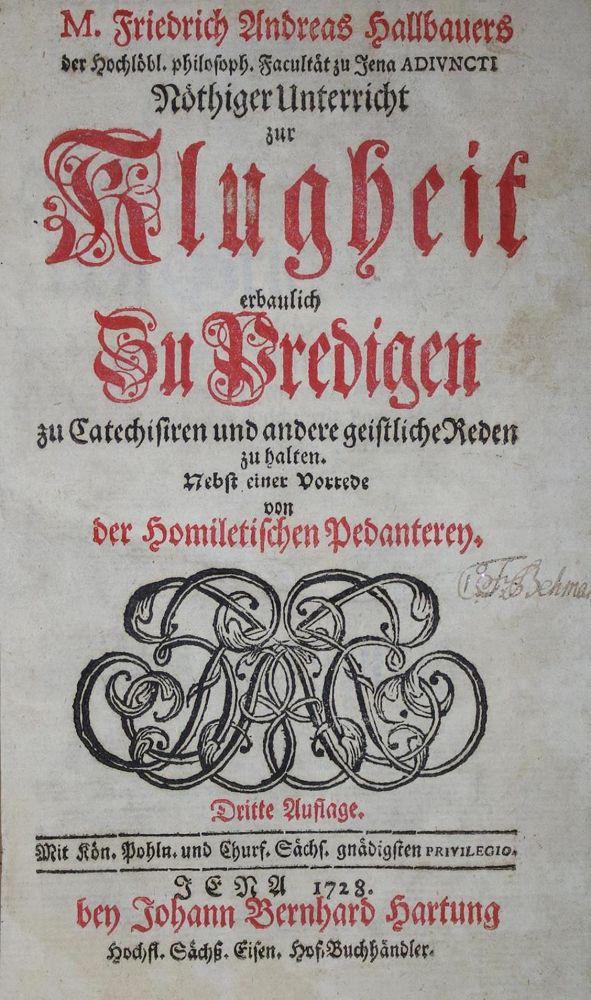 M. Friedrich Andreas Hallbauers
der Hochlöbl. philosoph. Facultät zu Jena ADIVNCTI
Nöthiger Unterricht
zur
Klugheit
erbaulich
Zu Predigen
zu Catechisiren und andere geistliche Reden
zu halten.
Nebst einer Vorrede
von
der Homiletischen Pedanterey.
Behman
Dritte Auflage.
Mit Kön. Pohln. und Churf. Sächs. gnädigsten PRIVILEGIO.
JENA 1728.
bey Johann Bernhard Hartung
Hochfl. Sächß. Eisen. Hof-Buchhändler.